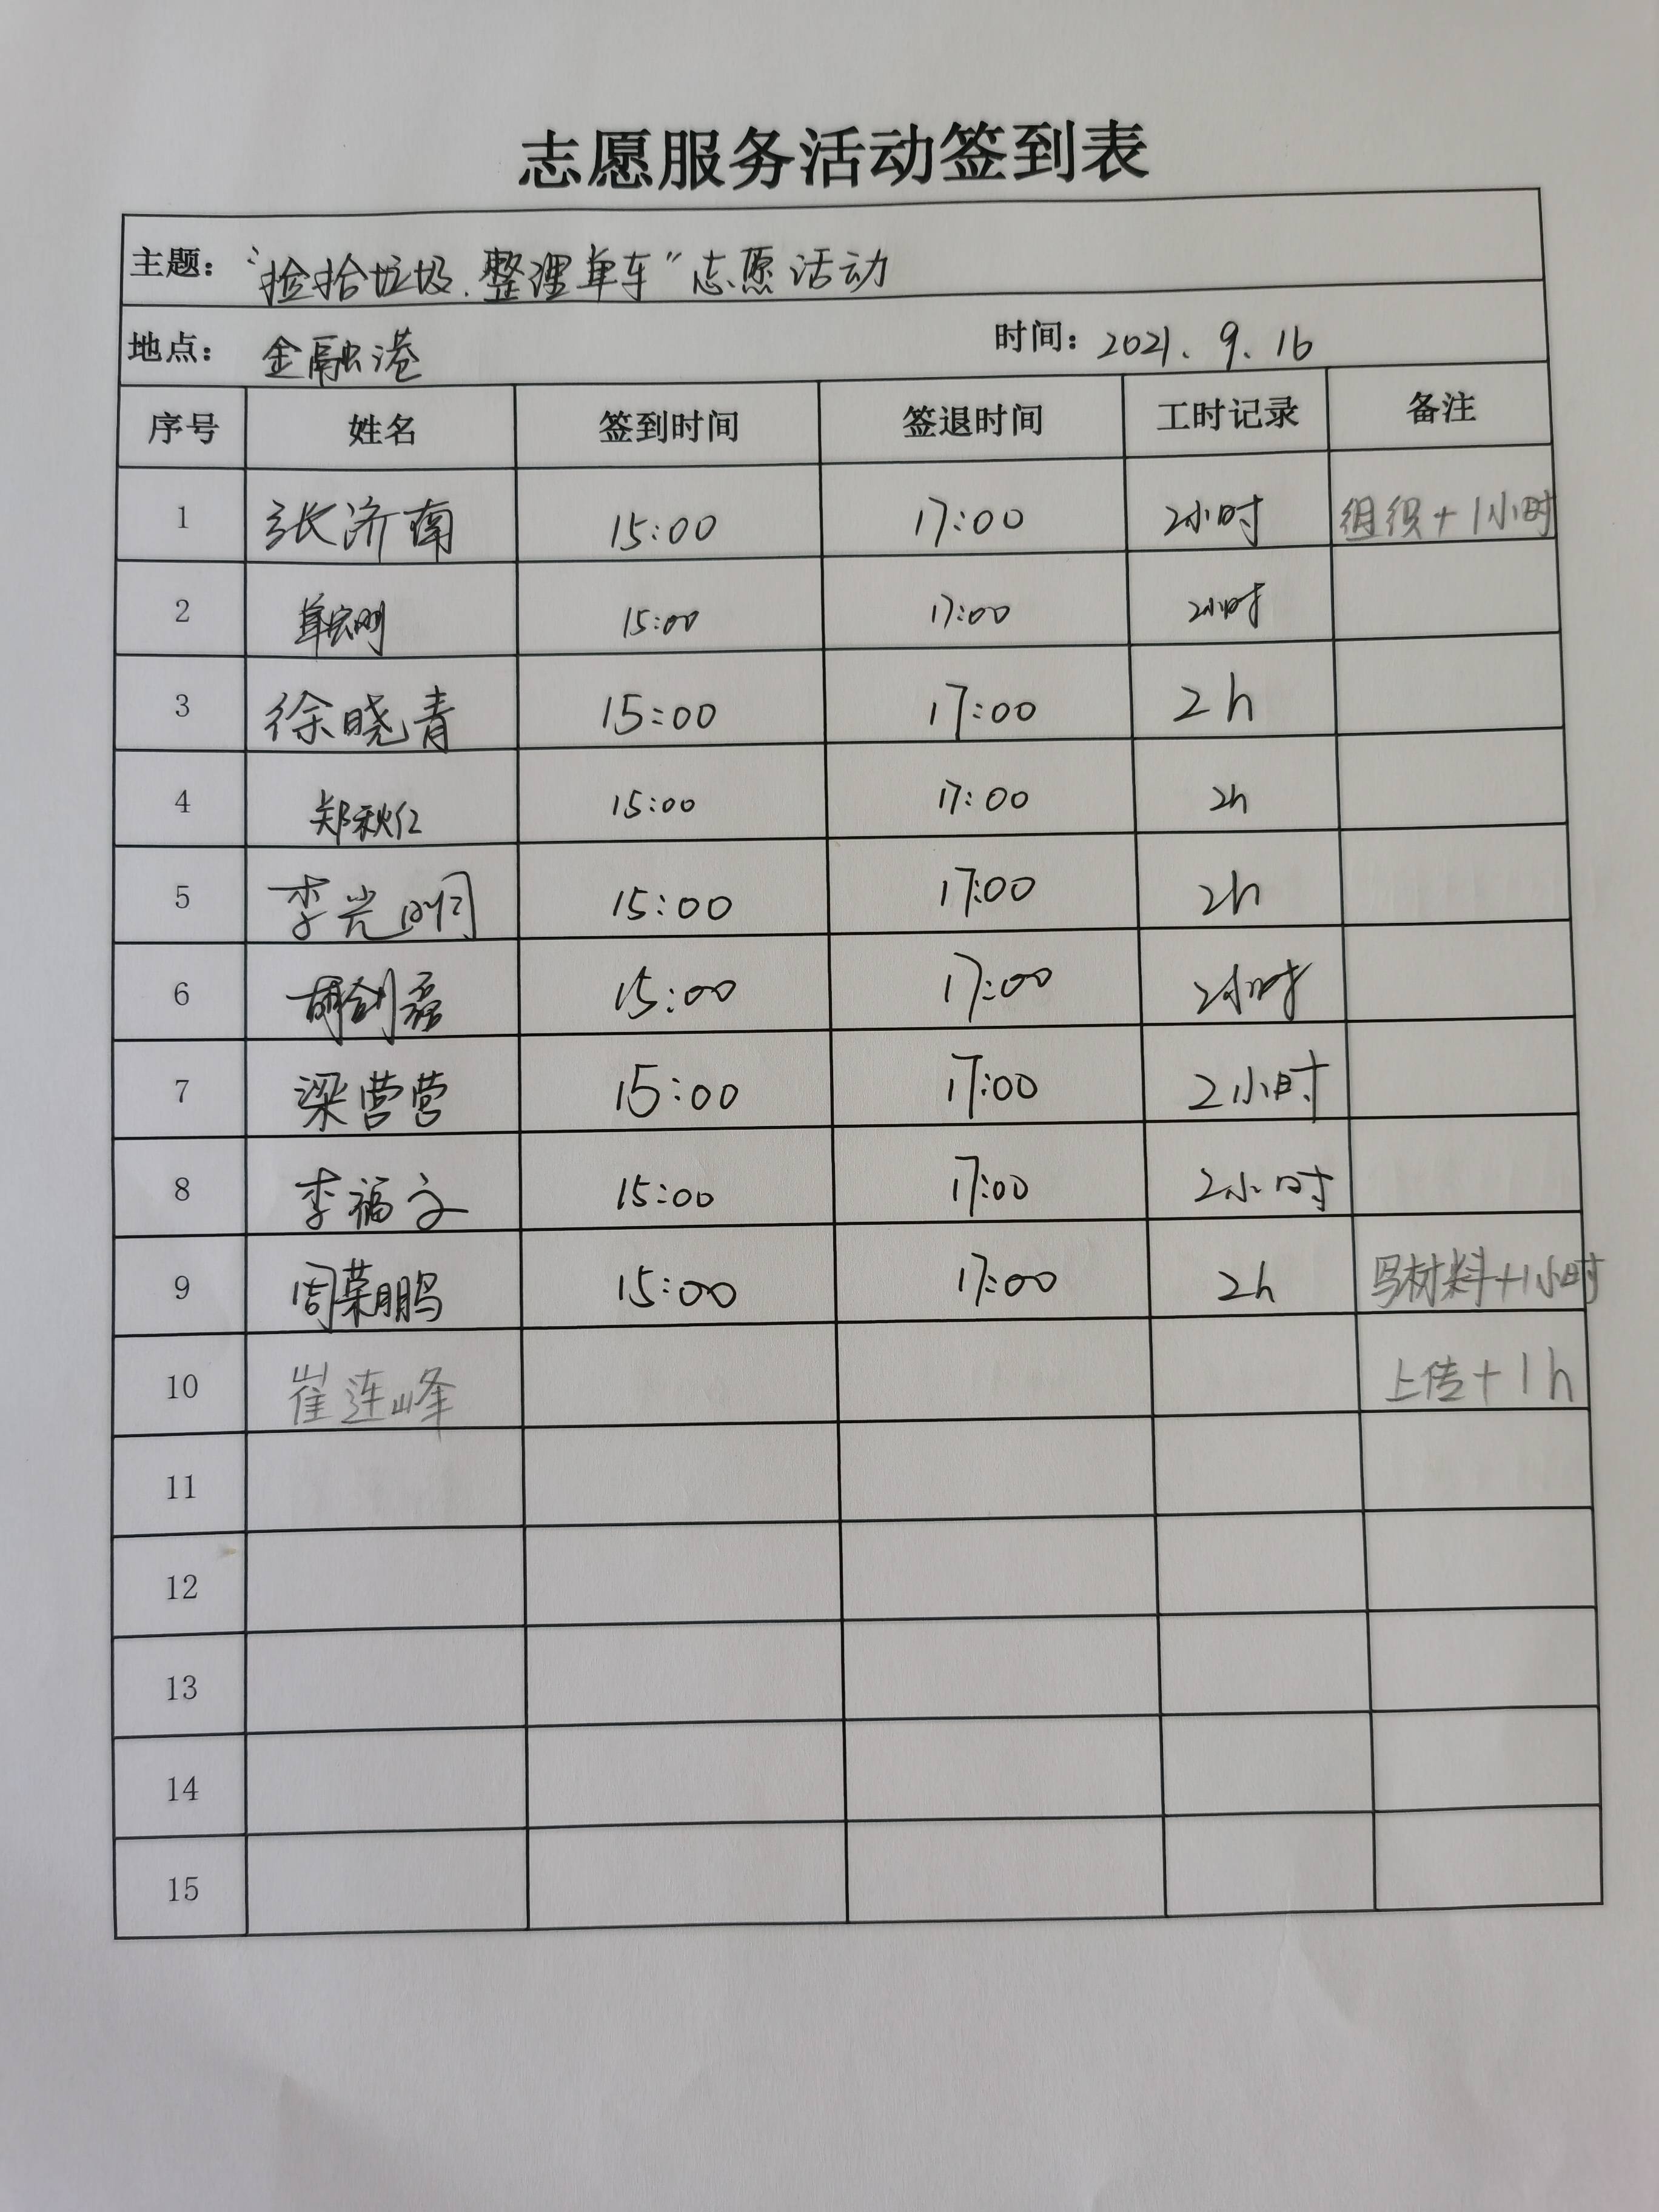 志愿服务活动签到表
主题： “捡拾垃圾、整理单车”志愿活动
地点： 金融港 时间：2021.9.16
序号 姓名 签到时间 签退时间 工时记录 备注
1 张济南 15:00 17:00 2小时 组织+1小时
2 15:00 17:00 2小时
3 徐晓青 15:00 17:00 2h
4 郑秋仁 15:00 17:00 2h
5 李光明 15:00 17:00 2h
6 胡剑磊 15:00 17:00 2小时
7 梁营营 15:00 17:00 2小时
8 李福文 15:00 17:00 2小时
9 周荣鹏 15:00 17:00 2h 写材料+1小时
10 崔连峰 上传+1h
11
12
13
14
15